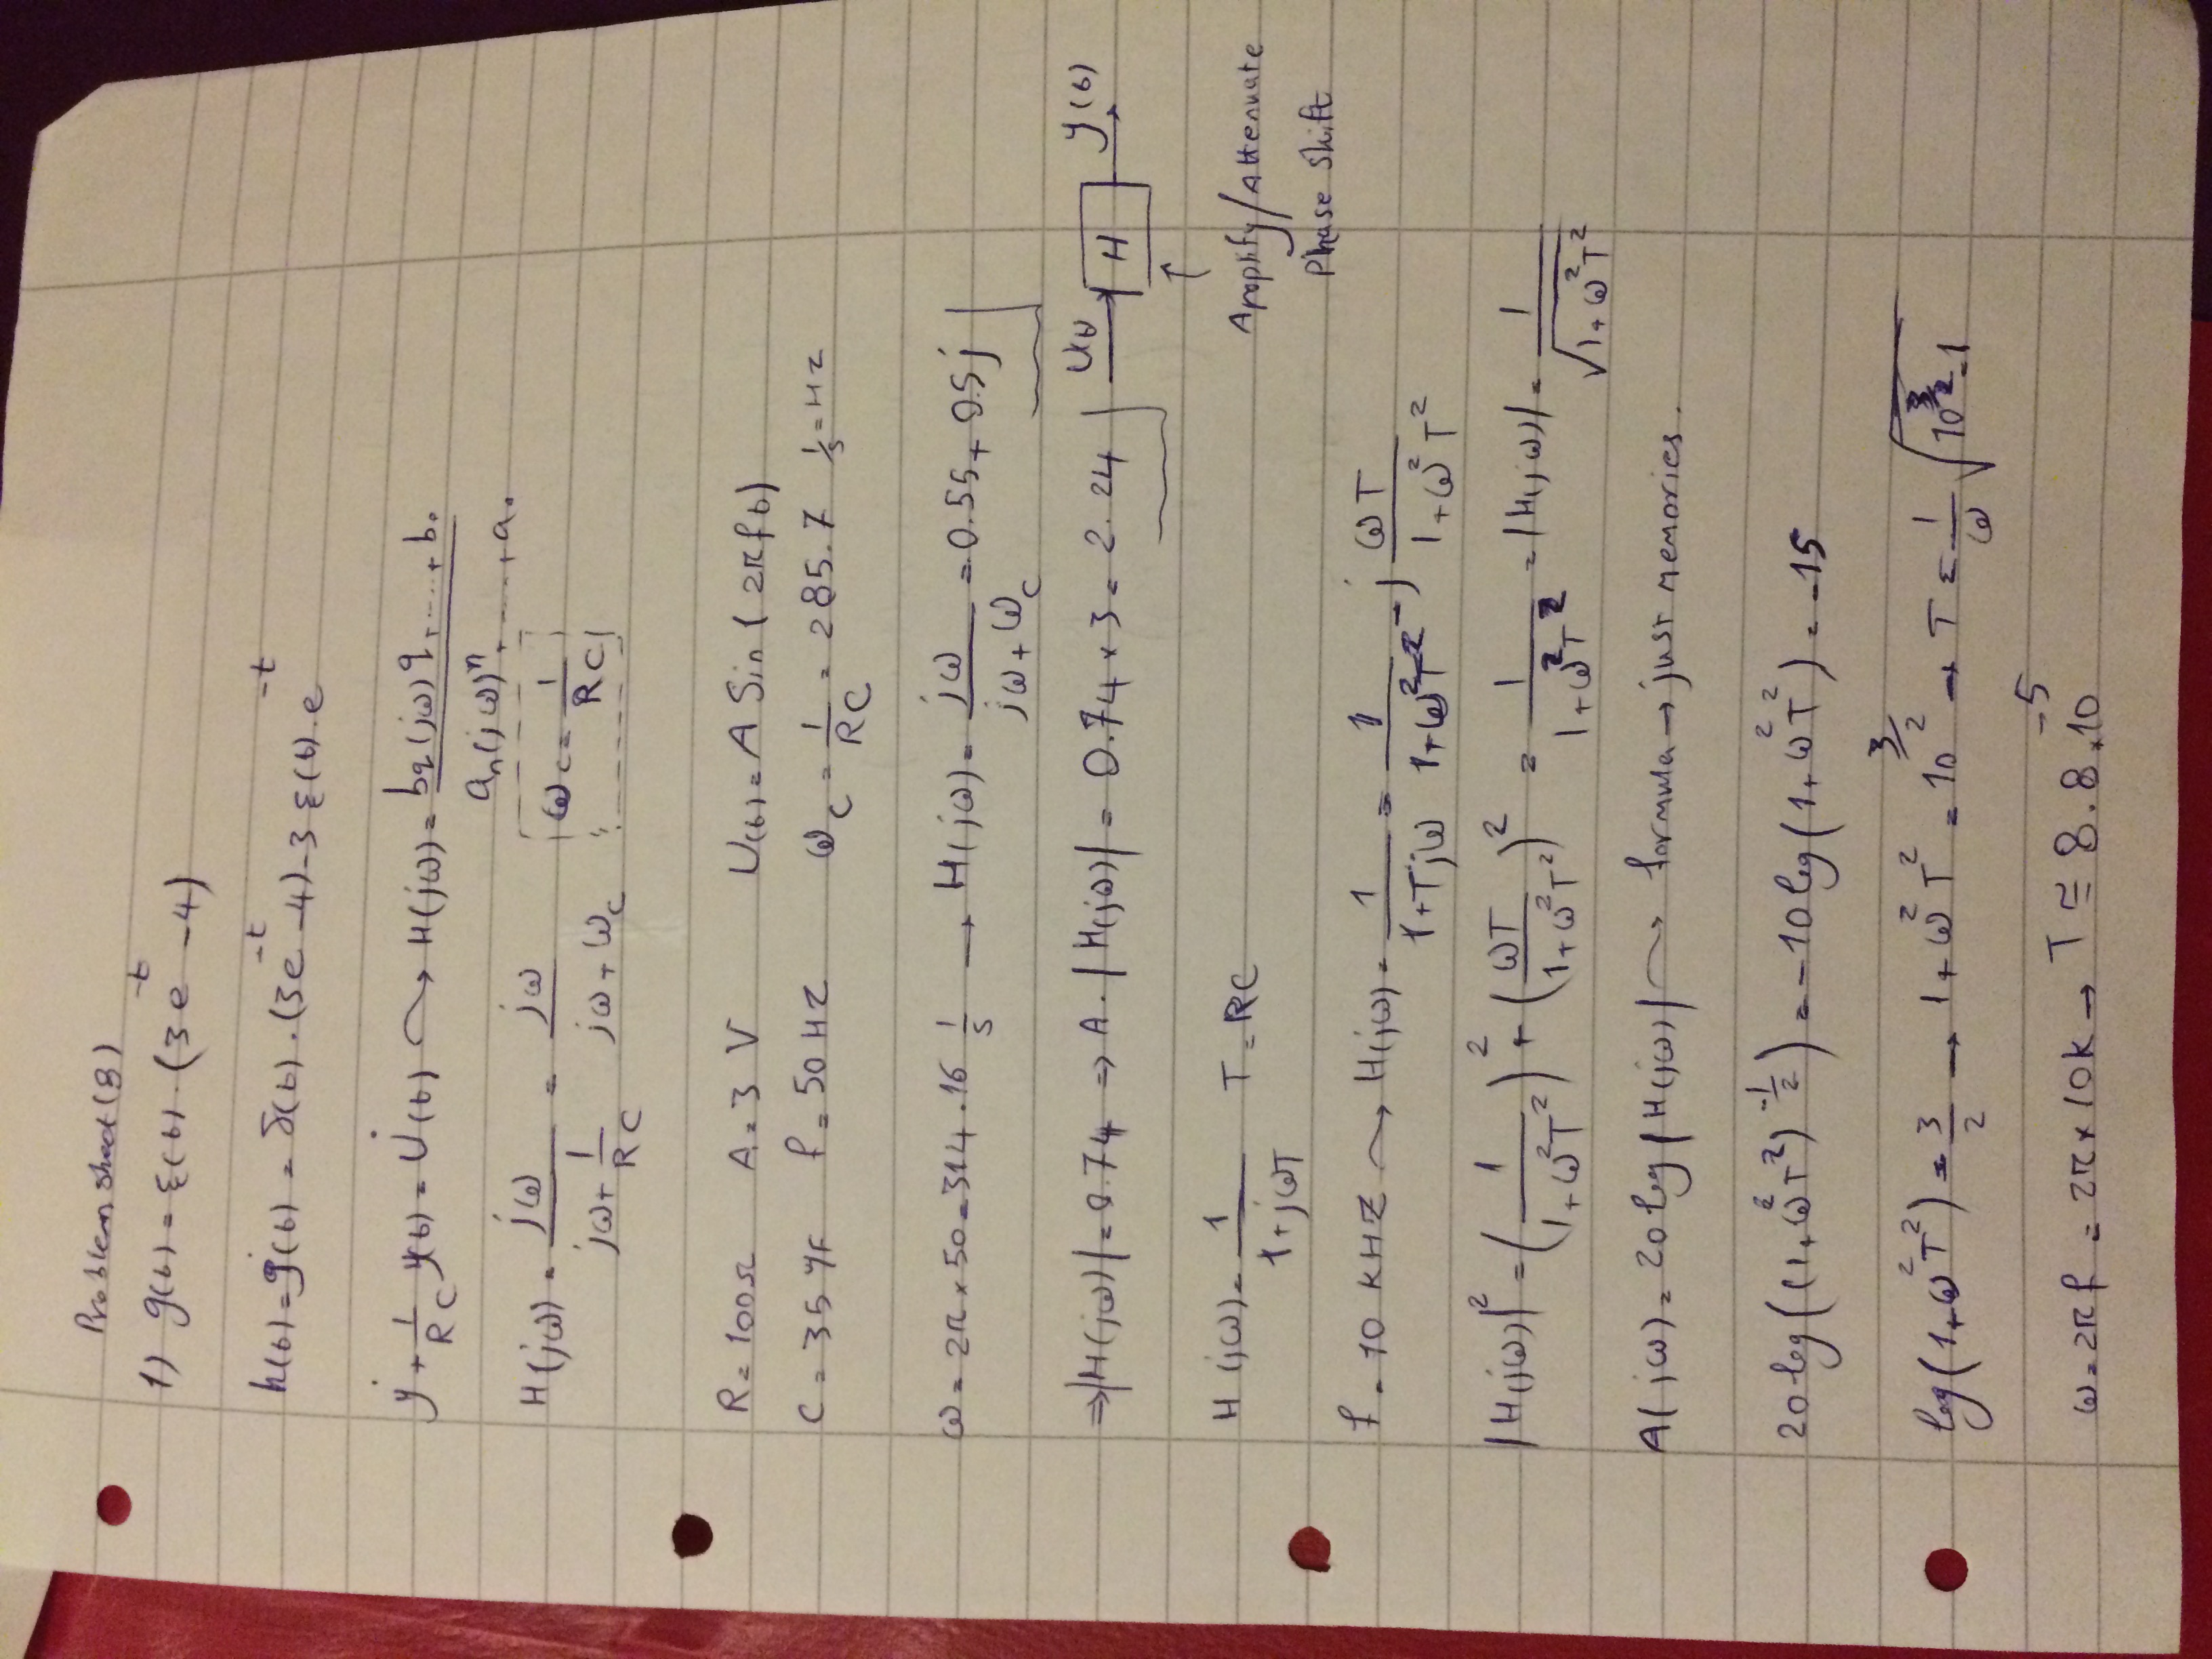 Problem sheet (8)
1) g(t) = ε(t) . (3e^-t - 4)
h(t) = ġ(t) = δ(t) . (3e^-t - 4) - 3 ε(t) . e^-t
ẏ + 1/RC y(t) = U̇(t) ↝ H(jω) = bq(jω)q + .... + b₀ / an(jω)^n + .... + a₀
H(jω) = jω / jω + 1/RC = jω / jω + ωc ωc = 1/RC
R = 100Ω A = 3 V U(t) = A Sin(2πft)
C = 35 μF f = 50 HZ ωc = 1/RC = 285.7 1/s = HZ
ω = 2π × 50 = 314.16 1/s → H(jω) = jω / jω + ωc = 0.55 + 0.5j
⇒ |H(jω)| = 0.74 ⇒ A . |H(jω)| = 0.74 × 3 = 2.24 U(t) → H → y(t)
↑
Amplify/Attenuate
Phase Shift
H(jω) = 1 / 1+jωT T = RC
f = 10 KHZ ↝ H(jω) = 1 / 1+Tjω = 1 / 1+ω²T² - j ωT / 1+ω²T²
|H(jω)|² = (1 / 1+ω²T²)² + (ωT / 1+ω²T²)² = 1 / 1+ω²T² = |H(jω)| = 1 / √1+ω²T²
A(jω) = 20 log |H(jω)| ↝ formula → just memories.
20 log((1+ω²T²)^-1/2) = -10 log(1+ω²T²) = -15
log(1+ω²T²) = 3/2 → 1+ω²T² = 10^3/2 → T = 1/ω √10^3/2 - 1
ω = 2πf = 2π × 10k → T ≅ 8.8 × 10^-5